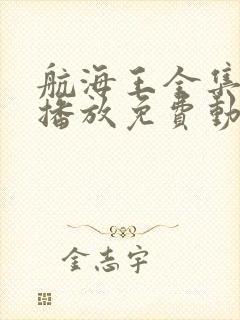 航海王全集
播放免費動
金志宇